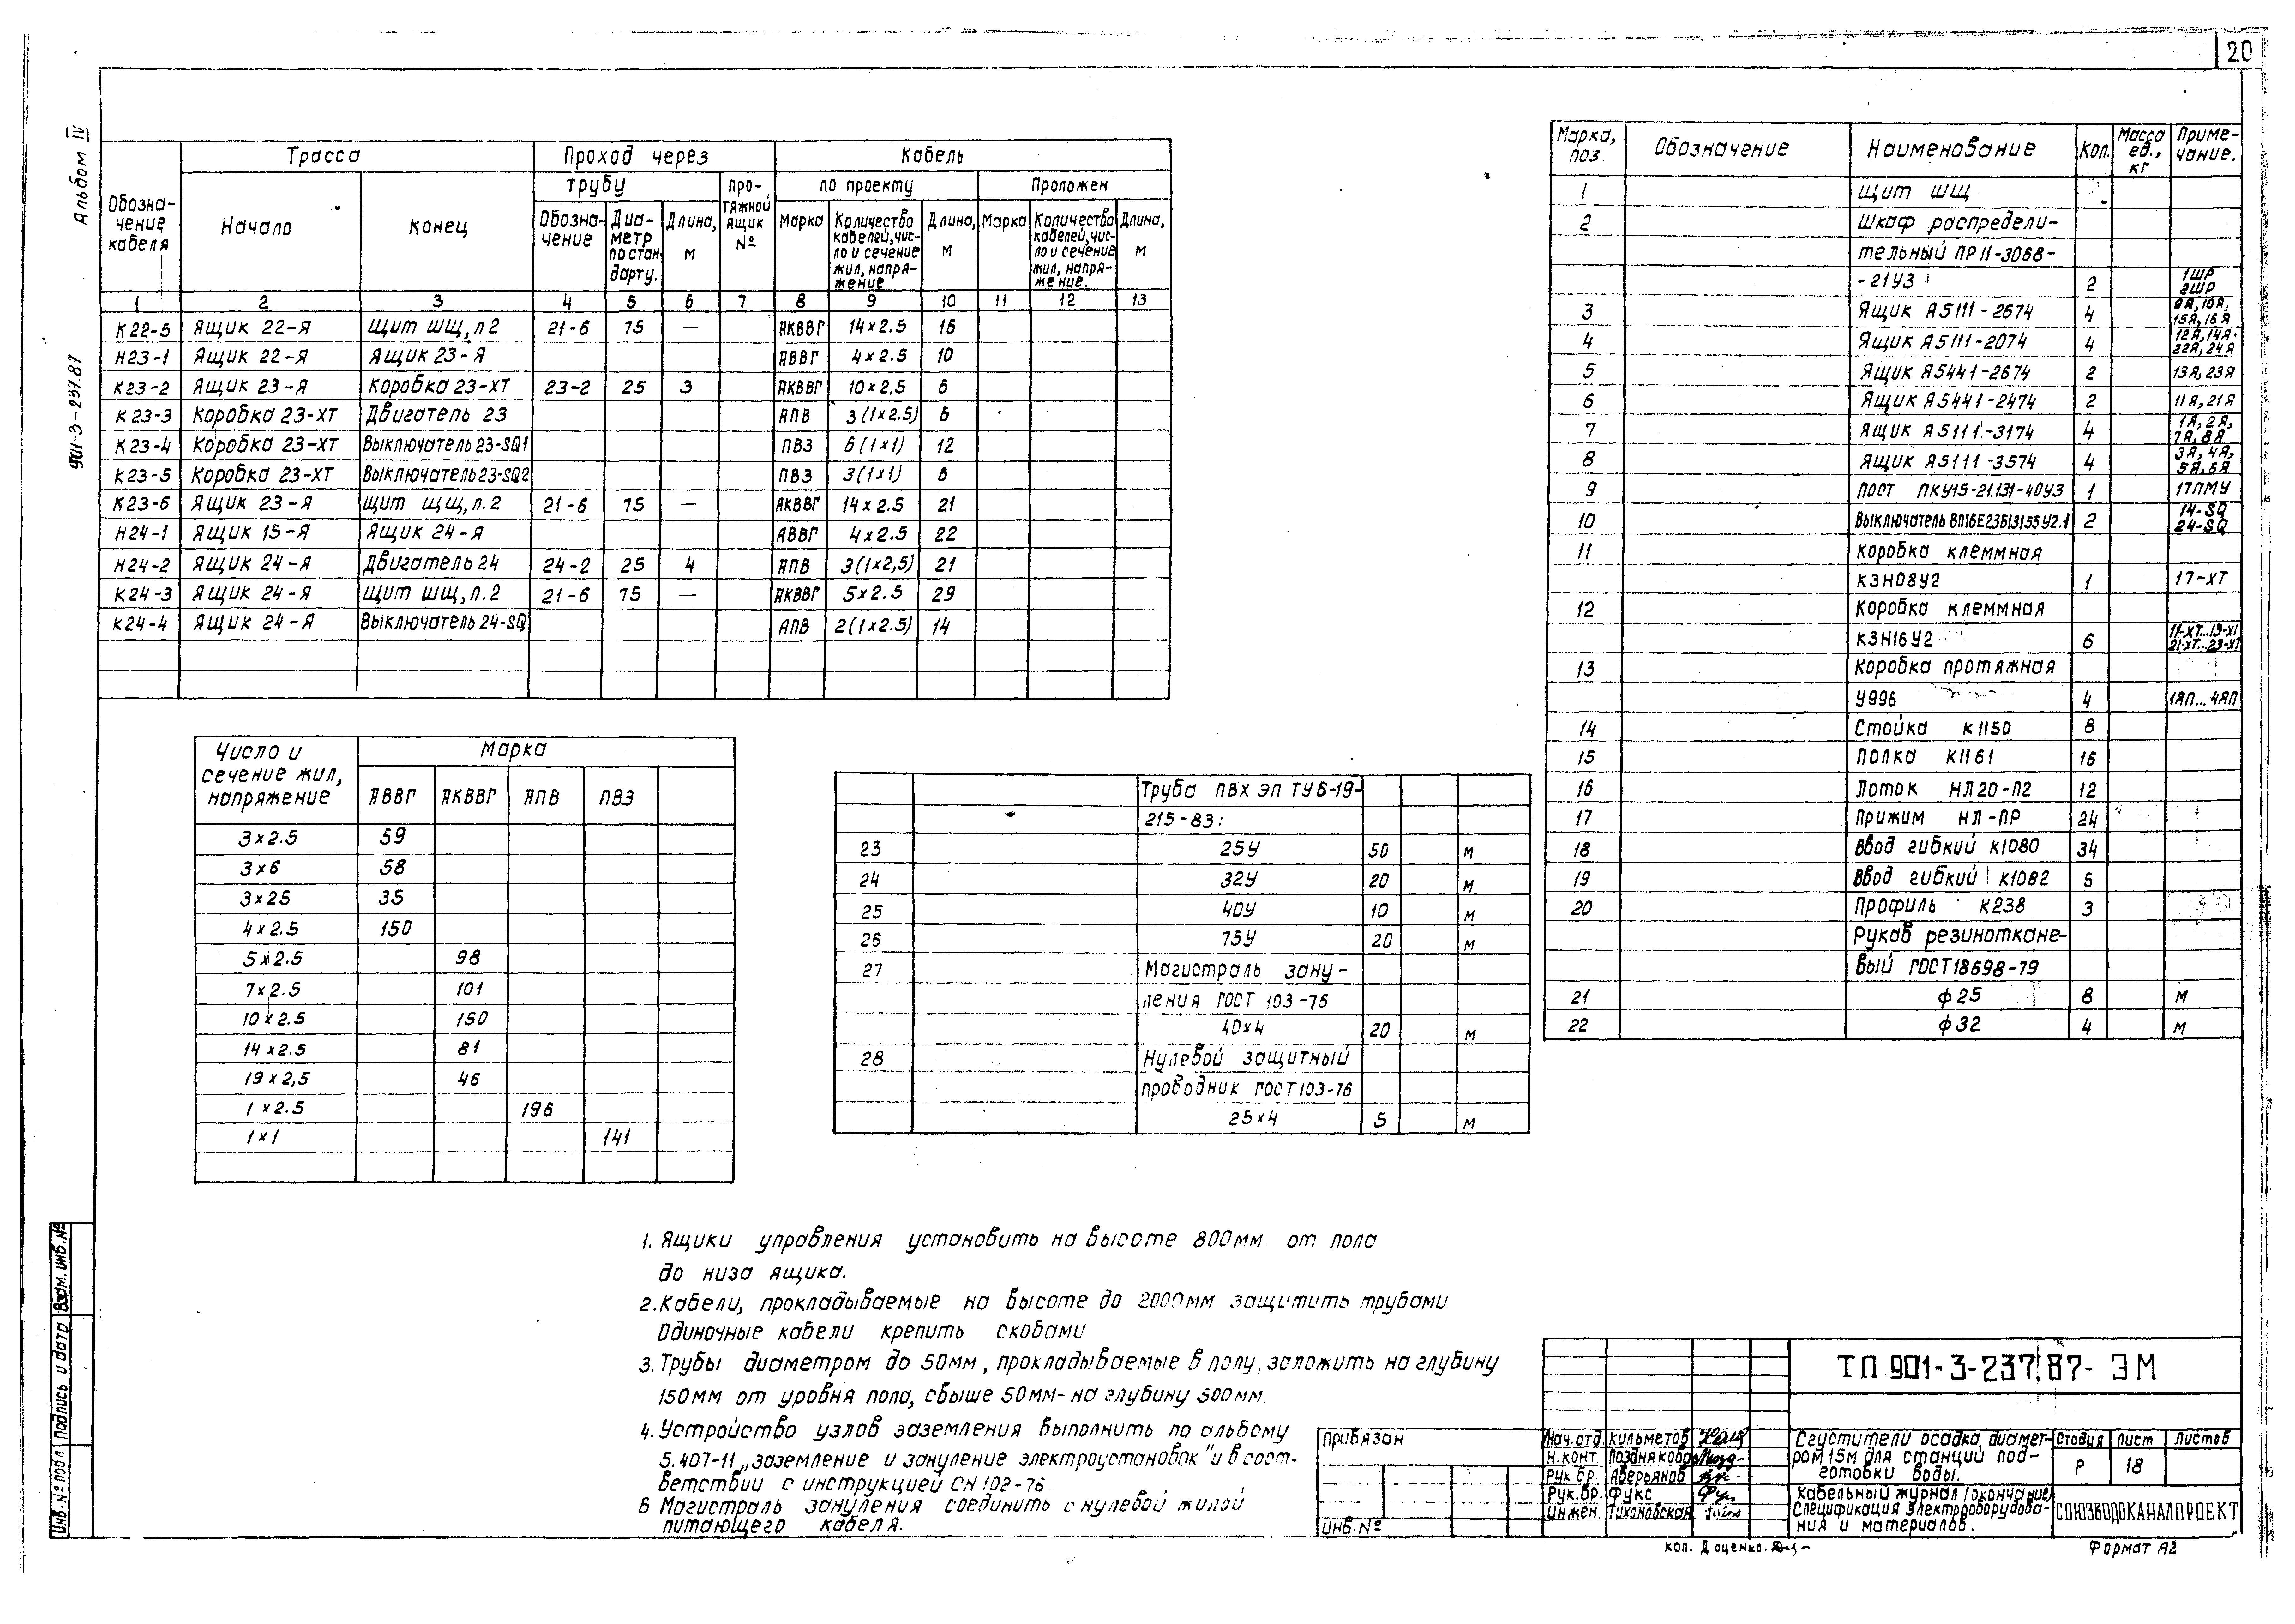 20
Альбом IV
901-3-237.87
Обозначение кабеля | Трасса | Проход через | Кабель
трубу | протяжной ящик № | по проекту | Проложен
Начало | Конец | Обозначение | Диаметр по стандарту. | Длина, м | Марка | Количество кабелей, число и сечение жил, напряжение | Длина, м | Марка | Количество кабелей, число и сечение жил, напряжение. | Длина, м
1 | 2 | 3 | 4 | 5 | 6 | 7 | 8 | 9 | 10 | 11 | 12 | 13
К22-5 | Ящик 22-Я | Щит ШЩ, п2 | 21-6 | 75 | — | АКВВГ | 14×2.5 | 16
Н23-1 | Ящик 22-Я | Ящик 23-Я | АВВГ | 4×2.5 | 10
К23-2 | Ящик 23-Я | Коробка 23-ХТ | 23-2 | 25 | 3 | АКВВГ | 10×2,5 | 6
К23-3 | Коробка 23-ХТ | Двигатель 23 | АПВ | 3(1×2.5) | 6
К23-4 | Коробка 23-ХТ | Выключатель 23-SQ1 | ПВ3 | 6(1×1) | 12
К23-5 | Коробка 23-ХТ | Выключатель 23-SQ2 | ПВ3 | 3(1×1) | 8
К23-6 | Ящик 23-Я | Щит ЩЩ, п.2 | 21-6 | 75 | — | АКВВГ | 14×2.5 | 21
Н24-1 | Ящик 15-Я | Ящик 24-Я | АВВГ | 4×2.5 | 22
Н24-2 | Ящик 24-Я | Двигатель 24 | 24-2 | 25 | 4 | АПВ | 3(1×2,5) | 21
К24-3 | Ящик 24-Я | Щит ШЩ, п.2 | 21-6 | 75 | — | АКВВГ | 5×2.5 | 29
К24-4 | Ящик 24-Я | Выключатель 24-SQ | АПВ | 2(1×2.5) | 14
Число и сечение жил, напряжение | Марка
АВВГ | АКВВГ | АПВ | ПВ3
3×2.5 | 59
3×6 | 58
3×25 | 35
4×2.5 | 150
5×2.5 | 98
7×2.5 | 101
10×2.5 | 150
14×2.5 | 81
19×2,5 | 46
1×2.5 | 196
1×1 | 141
Труба ПВХ ЭП ТУ6-19-
215-83:
23 | 25У | 50 | м
24 | 32У | 20 | м
25 | 40У | 10 | м
26 | 75У | 20 | м
27 | Магистраль зану-
ления ГОСТ 103-76
40×4 | 20 | м
28 | Нулевой защитный
проводник ГОСТ103-76
25×4 | 5 | м
Марка, поз. | Обозначение | Наименование | Кол. | Масса ед., кг | Приме-чание.
1 | Щит ШЩ
2 | Шкаф распредели-
тельный ПР11-3068-
-21У3 | 2 | 1ШР 2ШР
3 | Ящик Я5111-2674 | 4 | 9Я, 10Я, 15Я, 16Я
4 | Ящик Я5111-2074 | 4 | 12Я, 14Я, 22Я, 24Я
5 | Ящик Я5441-2674 | 2 | 13Я, 23Я
6 | Ящик Я5441-2474 | 2 | 11Я, 21Я
7 | Ящик Я5111-3174 | 4 | 1Я, 2Я, 7Я, 8Я
8 | Ящик Я5111-3574 | 4 | 3Я, 4Я, 5Я, 6Я
9 | Пост ПКУ15-21.131-40У3 | 1 | 17ПМУ
10 | Выключатель ВП16Е23Б13155У2.1 | 2 | 14-SQ 24-SQ
11 | Коробка клеммная
КЗН08У2 | 1 | 17-ХТ
12 | Коробка клеммная
КЗН16У2 | 6 | 11-ХТ...13-ХТ 21-ХТ...23-ХТ
13 | Коробка протяжная
У996 | 4 | 1ЯП... 4ЯП
14 | Стойка К1150 | 8
15 | Полка К1161 | 16
16 | Лоток НЛ20-П2 | 12
17 | Прижим НЛ-ПР | 24
18 | Ввод гибкий К1080 | 34
19 | Ввод гибкий К1082 | 5
20 | Профиль К238 | 3
Рукав резиноткане-
вый ГОСТ18698-79
21 | ф25 | 8 | м
22 | ф32 | 4 | м
1. Ящики управления установить на высоте 800мм от пола
до низа ящика.
2. Кабели, прокладываемые на высоте до 2000мм защитить трубами.
Одиночные кабели крепить скобами
3. Трубы диаметром до 50мм, прокладываемые в полу, заложить на глубину
150мм от уровня пола, свыше 50мм- на глубину 500мм.
4. Устройство узлов заземления выполнить по альбому
5.407-11 „Заземление и зануление электроустановок" и в соот-
ветствии с инструкцией СН 102-76
6 Магистраль зануления соединить с нулевой жилой
питающего кабеля.
Инв.№ подл | Подпись и дата | Взам. инв.№
Привязан
инв. №
ТП 901-3-237.87- ЭМ
Нач.отд. Кильметов
Н.конт. Позднякова
Рук.бр. Аверьянов
Рук.бр. Фукс
Инжен. Тихановская
Сгустители осадка диамет-
ром 15м для станций под-
готовки воды.
Стадия | Лист | Листов
Р | 18
Кабельный журнал (окончание)
Спецификация электрооборудова-
ния и материалов.
СОЮЗВОДОКАНАЛПРОЕКТ
Коп. Доценко.
Формат А2